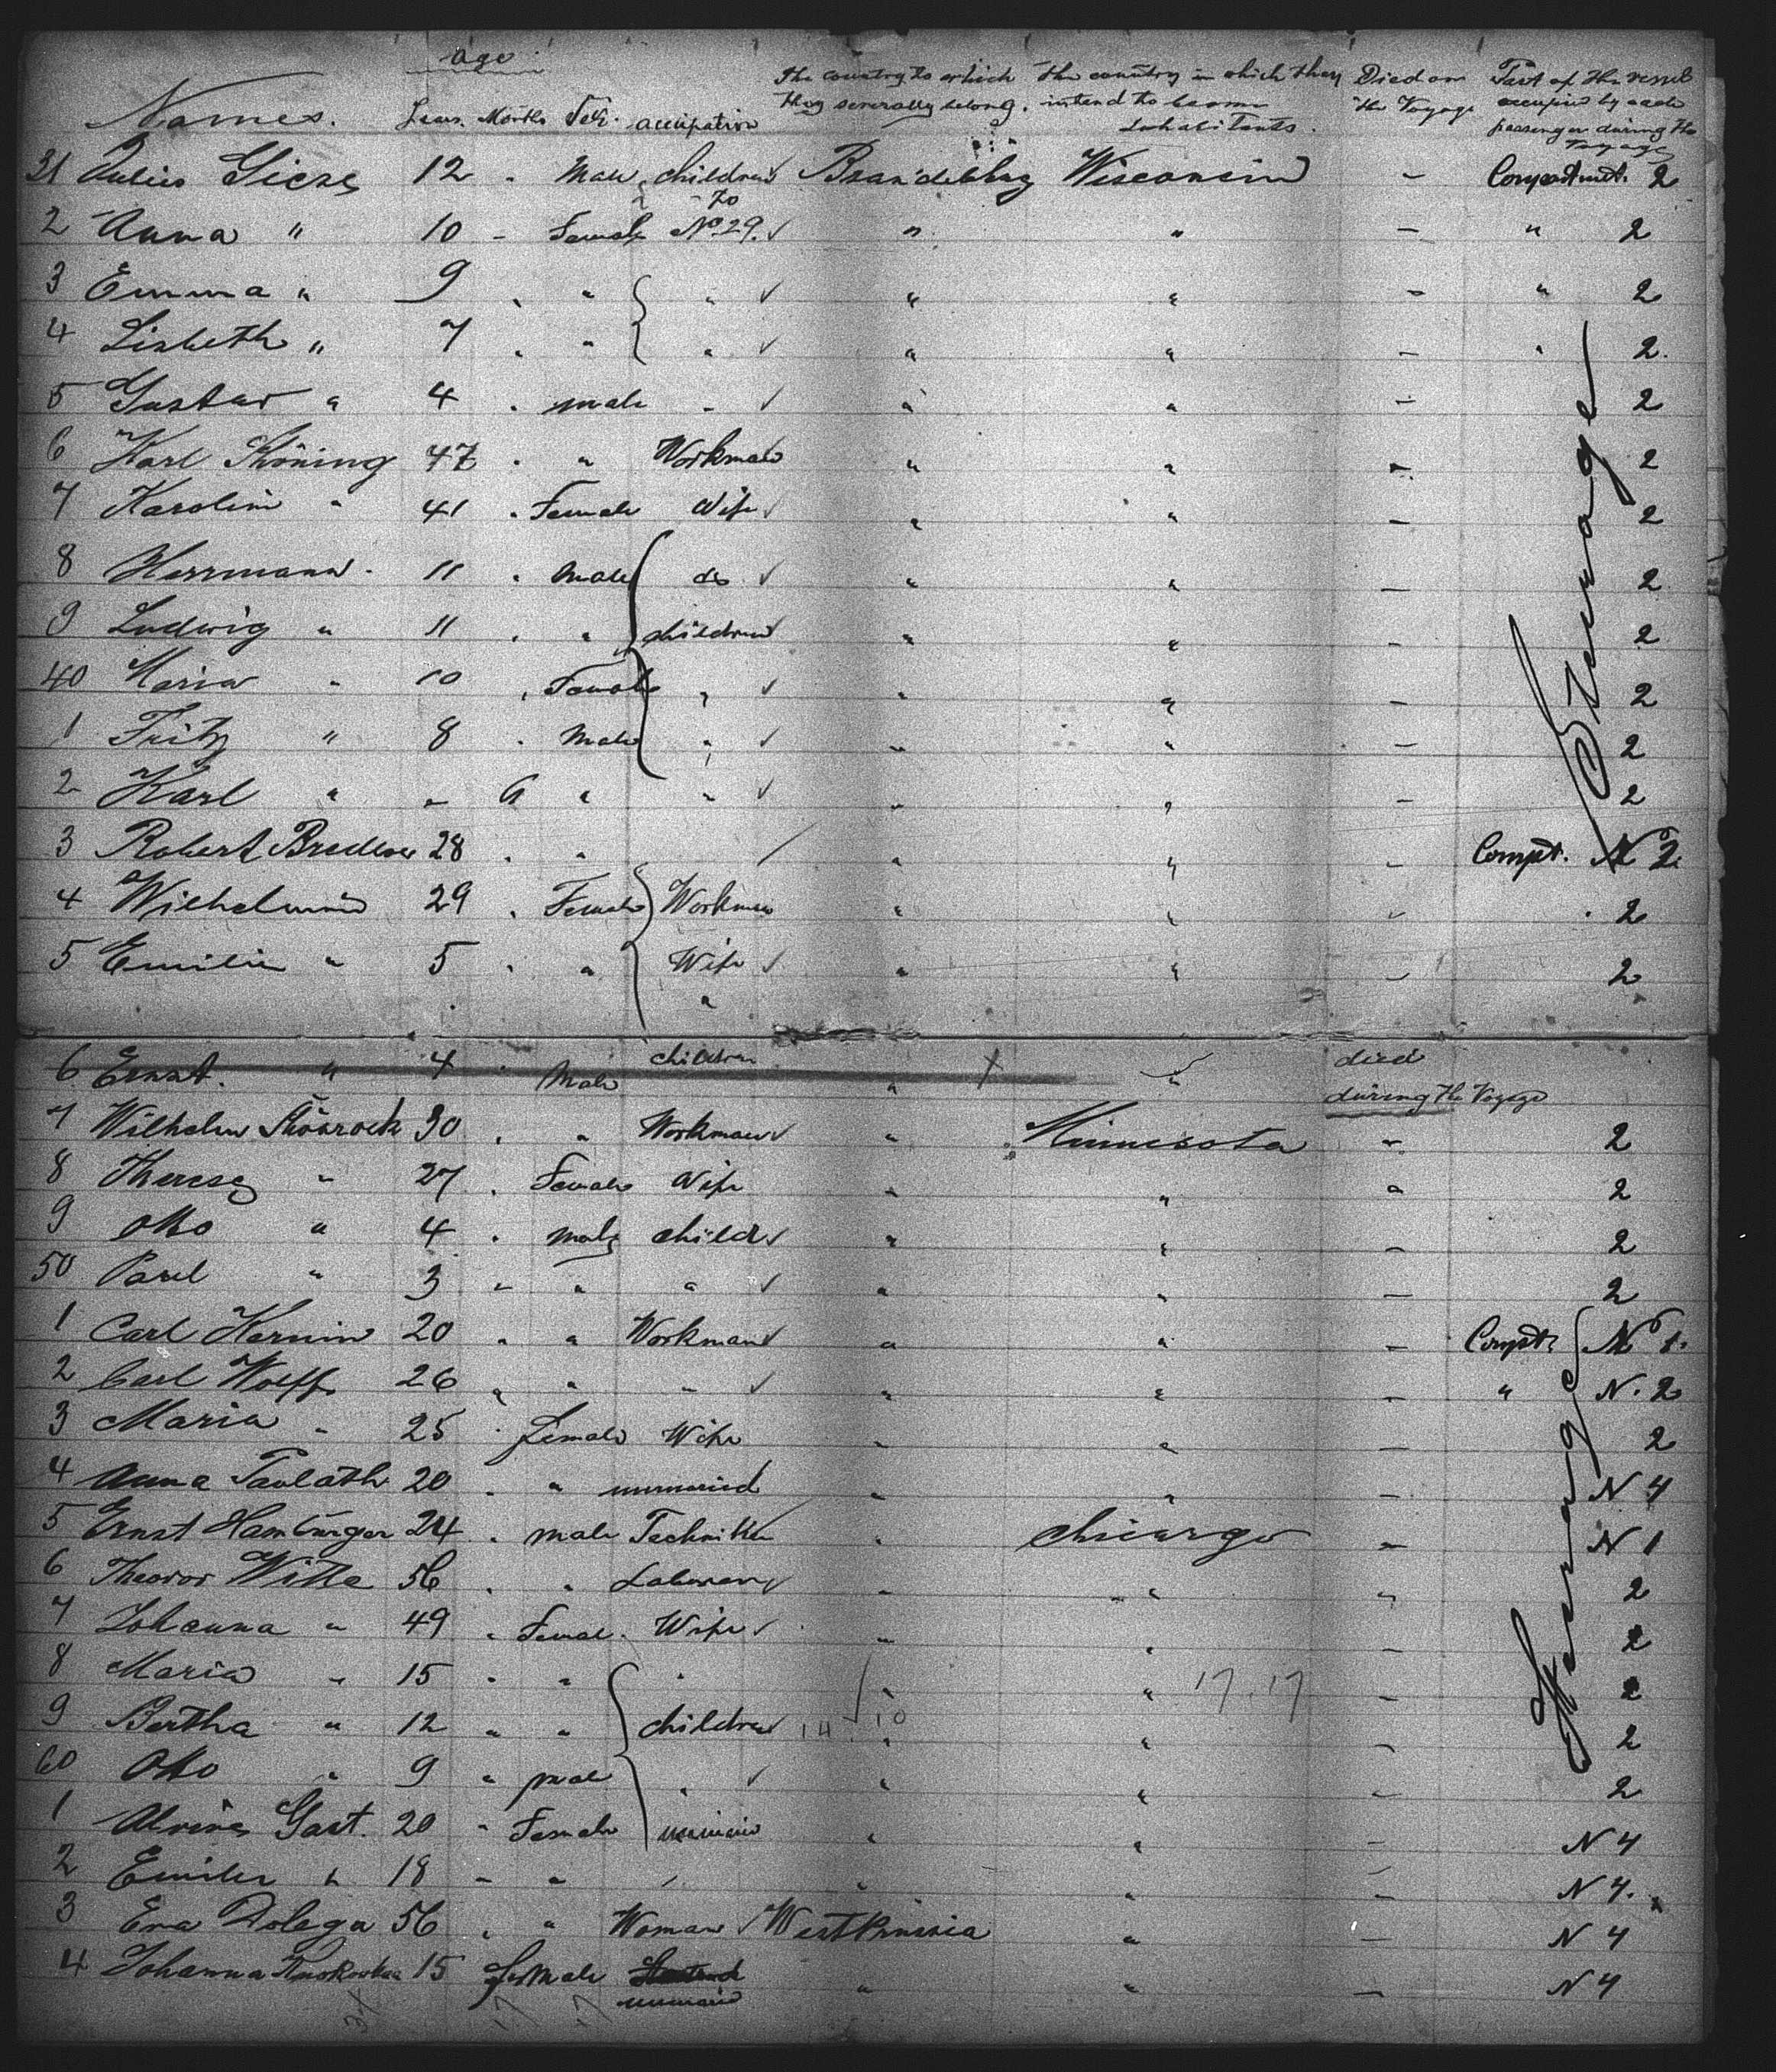 age
Names. Years. Months Sex. occupation The country to which they severally belong. The country in which they intend to become Inhabitants. Died on the Voyage Part of the vessel occupied by each passenger during the voyage
31 Julius Giese 12 - Male children Wisconsin - Compartmt. 2
to
2 Anna " 10 - Female No 29. " " - " 2
3 Emma " 9 " " " " " - " 2
4 Lisbeth " 7 " " " " " - " 2.
5 Gustav " 4 " male " " " - 2
6 Karl 47 " " Workman " " - 2
7 Karolin " 41 " Female Wife " " - 2
8 Herrmann " 11 " Male do " " - 2
9 Ludwig " 11 " " children " " - 2
40 Maria " 10 " Female " " " - 2
1 Fritz " 8 " Male " " " - 2
2 Karl " " 6 " " " " - 2
3 Robert 28 " " " " - Compt. N 2.
4 Wilhelmine 29 " Female Workman " " - " 2
5 Emilie " 5 " " Wife " " - 2
"
Steerage
children died
6 Ernst. " 4 " Male " "
during the Voyage
7 Wilhelm 30 " " Workman " Minnesota " 2
8 Therese " 27 " Female Wife " " " 2
9 Otto " 4 " male child " " - 2
50 Paul " 3 " " " " " - 2
1 Carl 20 " " Workman " " - Compt. No 1.
2 Carl Wolff 26 " " " " " - " N. 2
3 Maria " 25 " female Wife " " - 2
4 Anna 20 " " unmaried " " - N 4
5 Ernst Hamburger 24 " male Techniker " Chicargo " N 1
6 Theodor Witte 56 " " " " " 2
7 Johanna " 49 " Female. Wife " " - 2
8 Maria " 15 " " " " " 17.17 - 2
9 Bertha " 12 " " children 14 10 " " - 2
60 Otto " 9 " male " " " - 2
1 Gast. 20 " Female " " - N 4
2 " 18 " " " " " - N 4.
3 Eva Dolega 56 " " Woman Westprussia " - N 4
4 Johanna 15 female " " - N 4
Steerage